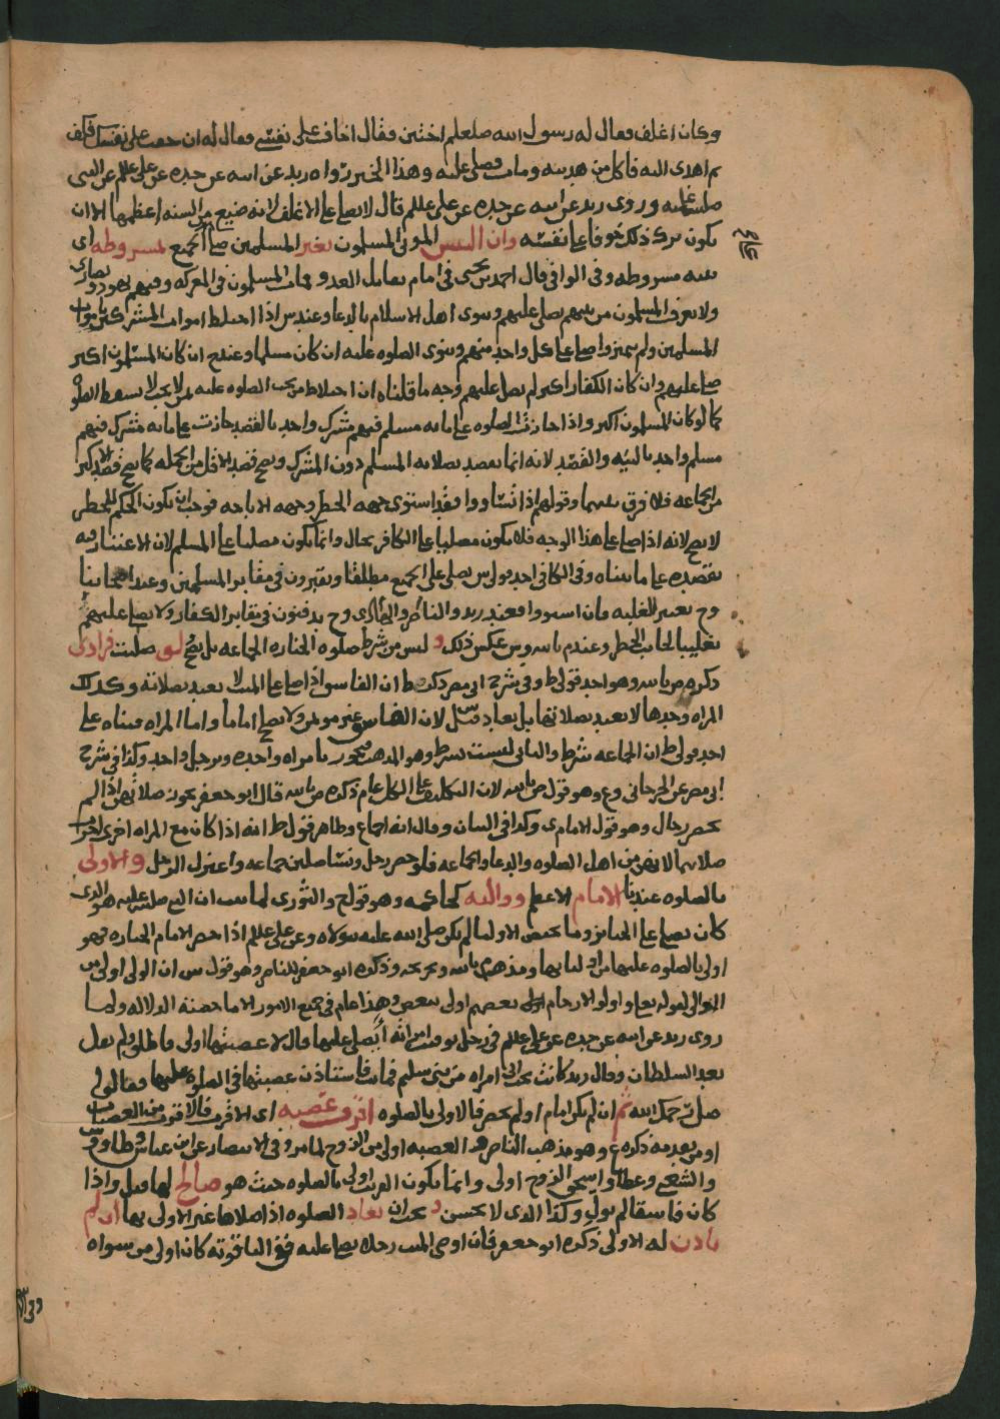 وكان اغلف فقال له رسول الله صلعلم اختتن فقال اخاف على نفسي فقال له ان خفت على نفسك فكف
ثم اهدى اليه فاكل من هديته ومات فصلى عليه وهذا الخبر رواه زيد عن ابيه عن جده عن علي علم عن النبي
صلى عليه وروى زيد عن ابيه عن جده عن علي علم قال لا يصلى على الاغلف لانه ضيع من السنه اعظمها الا ان
يكون ترك ذلك خوفا على نفسه وان التبس الموتى المسلمون بغير المسلمين صلى على الجميع لمسروطه اى
نيه مسروطه وفى الوافي قال احمد بن يحيى فى امام يقاتل العدو فمات المسلمون فى المعركه وفيهم يهود ونصارى
ولا يعرف المسلمون من غيرهم يصلي عليهم وينوى اهل الاسلام بالدعا وعند س اذا اختلط اموات المشركين باموات
المسلمين ولم يتميزوا صلى على كل واحد منهم وينوى الصلوه عليه ان كان مسلما وعند ح ان كان المسلمون اكثر
صلى عليهم وان كان الكفار اكثر لم يصل عليهم وجه ما قلناه ان اختلاط من يجب الصلوه عليه بمن لا يجب لا يسقط الصلوه
كما لو كان المسلمون اكثر واذا جازت الصلوه على مايه مسلم فيهم مشرك واحد بالقصد جازت على مايه مشرك فيهم
مسلم واحد بالنيه والقصد لانه انما يقصد بصلاته المسلم دون المشرك ويصح قصد الاقل من الجمله كما يصح قصد الاكثر
من الجماعه فلا فرق بينهما وقولهم اذا تساووا فقد استوى جهه الحظر وجهه الاباحه فوجب ان يكون الحكم للحظر
لا يصح لانه اذا صلى على هذا الوجه فلا يكون مصليا على الكافر بحال وانما يكون مصليا على المسلم لان الاعتبار فيه
بقصده على ما بيناه وفى الكافي احد قولي س يصلى على الجميع مطلقا ويقبرون فى مقابر المسلمين وعند اصحابنا
وح يعتبر الغلبه فان استووا فعند زيد والناصر وح يدفنون فى مقابر الكفار ولا يصلى عليهم
تغليبا لجانب الحظر وعند م بالله وس عكس ذلك و ليس من شرط صلوه الجنازه الجماعه بل يصح لو صليت فرادى
ذكره م بالله وهو احد قولي ط وفى شرح ابى مضر ذكر ط ان الفاسق اذا صلى على الميت لا يعتد بصلاته وكذلك
المراه وحدها لا يعتد بصلاتها بل يعاد لان الفاسق غير مؤتمن ولا يصح اماما واما المراه فبناه على
احد قولي ط ان الجماعه شرط والثاني ليست بشرط وهو المذهب فتجوز بامراه واحده وبرجل واحد وكذا فى شرح
ابى مضر عن الجرجاني وع وهو قول م بالله لان التكليف على الكل عام ذكره م بالله قال ابو جعفر تجوز صلاتهن اذا لم
يحضر رجال وهو قول الامام ى وكذا فى البيان وقال انه اجماع وظاهر قول ط انه اذا كان مع المراه اخرى اجزات
صلاتهما لانهن من اهل الصلوه والدعا والجماعه فلو حضر رجل ونسا صلين جماعه واعتزل الرجل والاولى
بالصلوه عندنا الامام الاعظم وواليه كحاكمه وهو قول ح والثوري لما ثبت ان النبي صلى عليه هو الذى
كان يصلى على الجنايز وما يحضر الاوليا لم يكن صلى الله عليه يتولاه وعن علي علم اذا حضر الامام الجنازه فهو
اولى بالصلوه عليها من اوليائها ومذهب م بالله وتخريجه وذكره ابو جعفر للناصر وهو قول س ان الولى اولى من
الوالى لقوله تعلى واولوا الارحام بعضهم اولى ببعض وهذا عام فى جميع الامور الا ما خصته الدلاله ولما
روى زيد عن ابيه عن جده عن علي علم فى رجل توفت امراته أيصلى عليها قال لا عصبتها اولى فاطلق ولم يقل
بعد السلطان وقال زيد كانت تحت ابى امراه من بنى سليم فماتت فاستاذن عصبتها فى الصلوه عليها فقالوا
صل رحمك الله ثم ان لم يكن امام او لم يحضر فالاولى بالصلوه اقرب عصبه اى الاقرب فالاقرب من العصبات
وهو مذهب الناصر العصبه اولى من الزوج لما مر وفى الانتصار عن ابن عباس وطاووس
والشعبي وعطا واسحق الزوج اولى وانما يكون القريب اولى بالصلوه حيث هو صالح لها واذا
كان فاسقا لم يول وكذا الذى لا يحسن و يجب ان تعاد الصلوه اذا صلاها غير الاولى بها ان لم
ياذن له الاولى ذكره ابو جعفر فان اوصى الميت رجلا يصلى عليه ففى الياقوته كان اولى من سواه